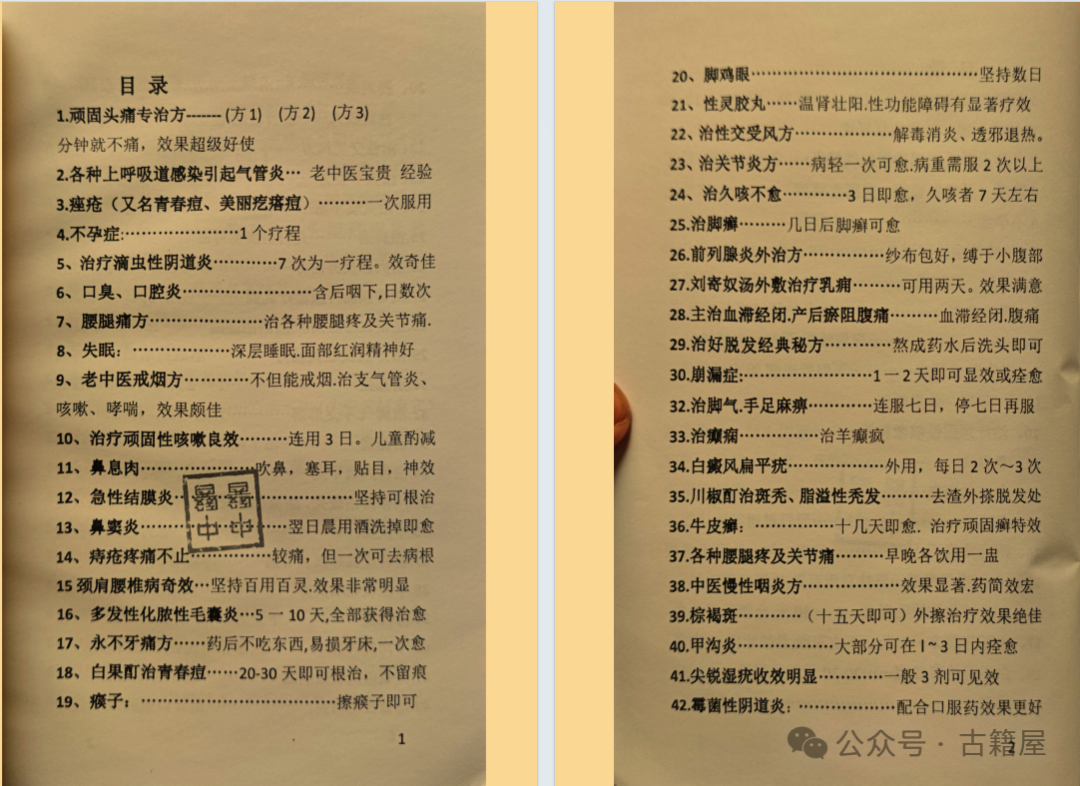 目 录
1.顽固头痛专治方-------(方1) (方2) (方3)
分钟就不痛，效果超级好使
2.各种上呼吸道感染引起气管炎… 老中医宝贵 经验
3.痤疮（又名青春痘、美丽疙瘩痘）………一次服用
4.不孕症:…………………1个疗程
5、治疗滴虫性阴道炎…………7次为一疗程。效奇佳
6、口臭、口腔炎……………………含后咽下,日数次
7、腰腿痛方…………………治各种腰腿疼及关节痛.
8、失眠：………………深层睡眠.面部红润精神好
9、老中医戒烟方…………不但能戒烟.治支气管炎、
咳嗽、哮喘，效果颇佳
10、治疗顽固性咳嗽良效………连用3日。儿童酌减
11、鼻息肉…………………吹鼻，塞耳，贴目，神效
12、急性结膜炎……………………………坚持可根治
13、鼻窦炎………………………翌日晨用酒洗掉即愈
14、痔疮疼痛不止……………较痛，但一次可去病根
15 颈肩腰椎病奇效…坚持百用百灵.效果非常明显
16、多发性化脓性毛囊炎…5一10天,全部获得治愈
17、永不牙痛方……药后不吃东西,易损牙床,一次愈
18、白果酊治青春痘……20-30天即可根治，不留痕
19、瘊子：………………………………擦瘊子即可
中医
中医
1
20、脚鸡眼……………………………………坚持数日
21、性灵胶丸……温肾壮阳.性功能障碍有显著疗效
22、治性交受风方………………解毒消炎、透邪退热。
23、治关节炎方……病轻一次可愈.病重需服2次以上
24、治久咳不愈…………3日即愈，久咳者7天左右
25.治脚癣………几日后脚癣可愈
26.前列腺炎外治方……………纱布包好，缚于小腹部
27.刘寄奴汤外敷治疗乳痈………可用两天。效果满意
28.主治血滞经闭.产后瘀阻腹痛………血滞经闭.腹痛
29.治好脱发经典秘方…………熬成药水后洗头即可
30.崩漏症:……………………1一2天即可显效或痊愈
32.治脚气.手足麻痹…………连服七日，停七日再服
33.治癫痫……………治羊癫疯
34.白癜风扁平疣………………外用，每日2次～3次
35.川椒酊治斑秃、脂溢性秃发………去渣外搽脱发处
36.牛皮癣：……………十几天即愈. 治疗顽固癣特效
37.各种腰腿疼及关节痛………早晚各饮用一盅
38.中医慢性咽炎方………………效果显著.药简效宏
39.棕褐斑…………（十五天即可）外擦治疗效果绝佳
40.甲沟炎………………大部分可在l~3日内痊愈
41.尖锐湿疣收效明显…………一般3剂可见效
42.霉菌性阴道炎：………………配合口服药效果更好
2
公众号·古籍屋